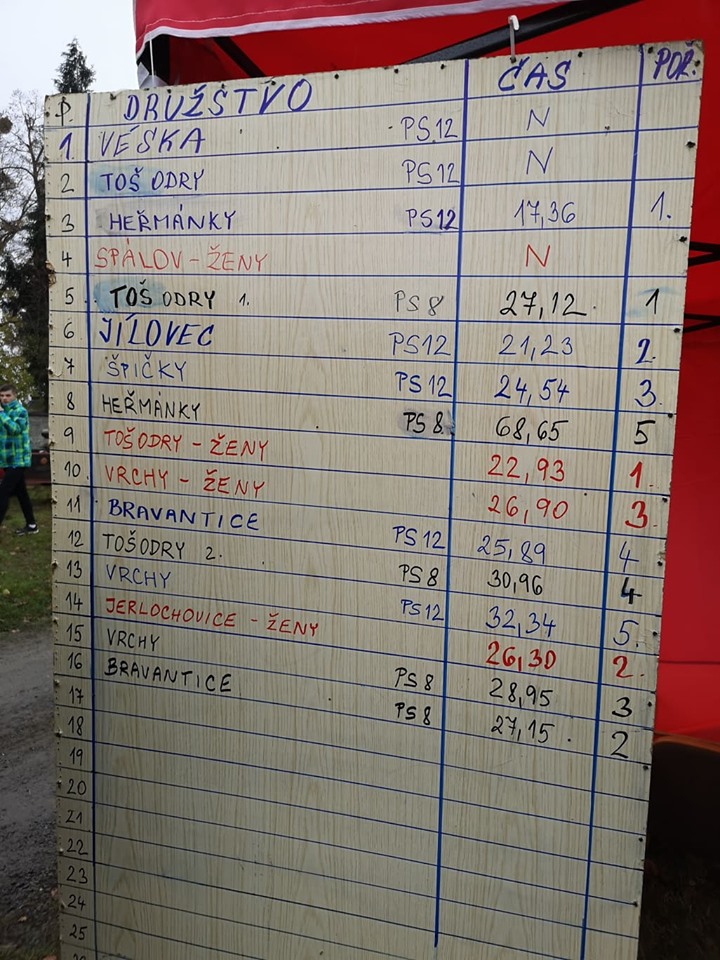 P. DRUŽSTVO ČAS POŘ.
1. VÉSKA PS12 N
2 TOŠ ODRY PS12 N
3 HEŘMÁNKY PS12 17,36 1.
4 SPÁLOV - ŽENY N
5 TOŠ ODRY 1. PS8 27,12 1
6 JÍLOVEC PS12 21,23 2.
7 ŠPIČKY PS12 24,54 3.
8 HEŘMÁNKY PS8 68,65 5
9 TOŠODRY - ŽENY 22,93 1.
10 VRCHY - ŽENY 26,90 3.
11 BRAVANTICE PS12 25,89 4
12 TOŠODRY 2. PS8 30,96 4
13 VRCHY PS12 32,34 5.
14 JERLOCHOVICE - ŽENY 26,30 2.
15 VRCHY PS8 28,95 3
16 BRAVANTICE PS8 27,15 2
17
18
19
20
21
22
23
24
25